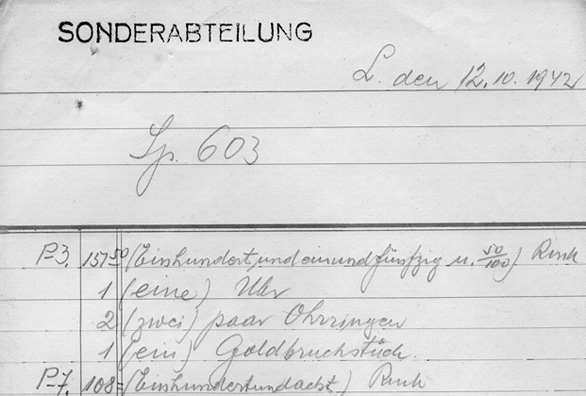 SONDERABTEILUNG
L. den 12.10.1942
Sp. 603
P-3. 151 50 (Einhundertundeinundfünfzig u. 50/100) Rmk
1 (eine) Uhr
2 (zwei) paar Ohrringen
1 (ein) Goldbruchstück.
P-7. 108= (Einhundertundacht) Rmk